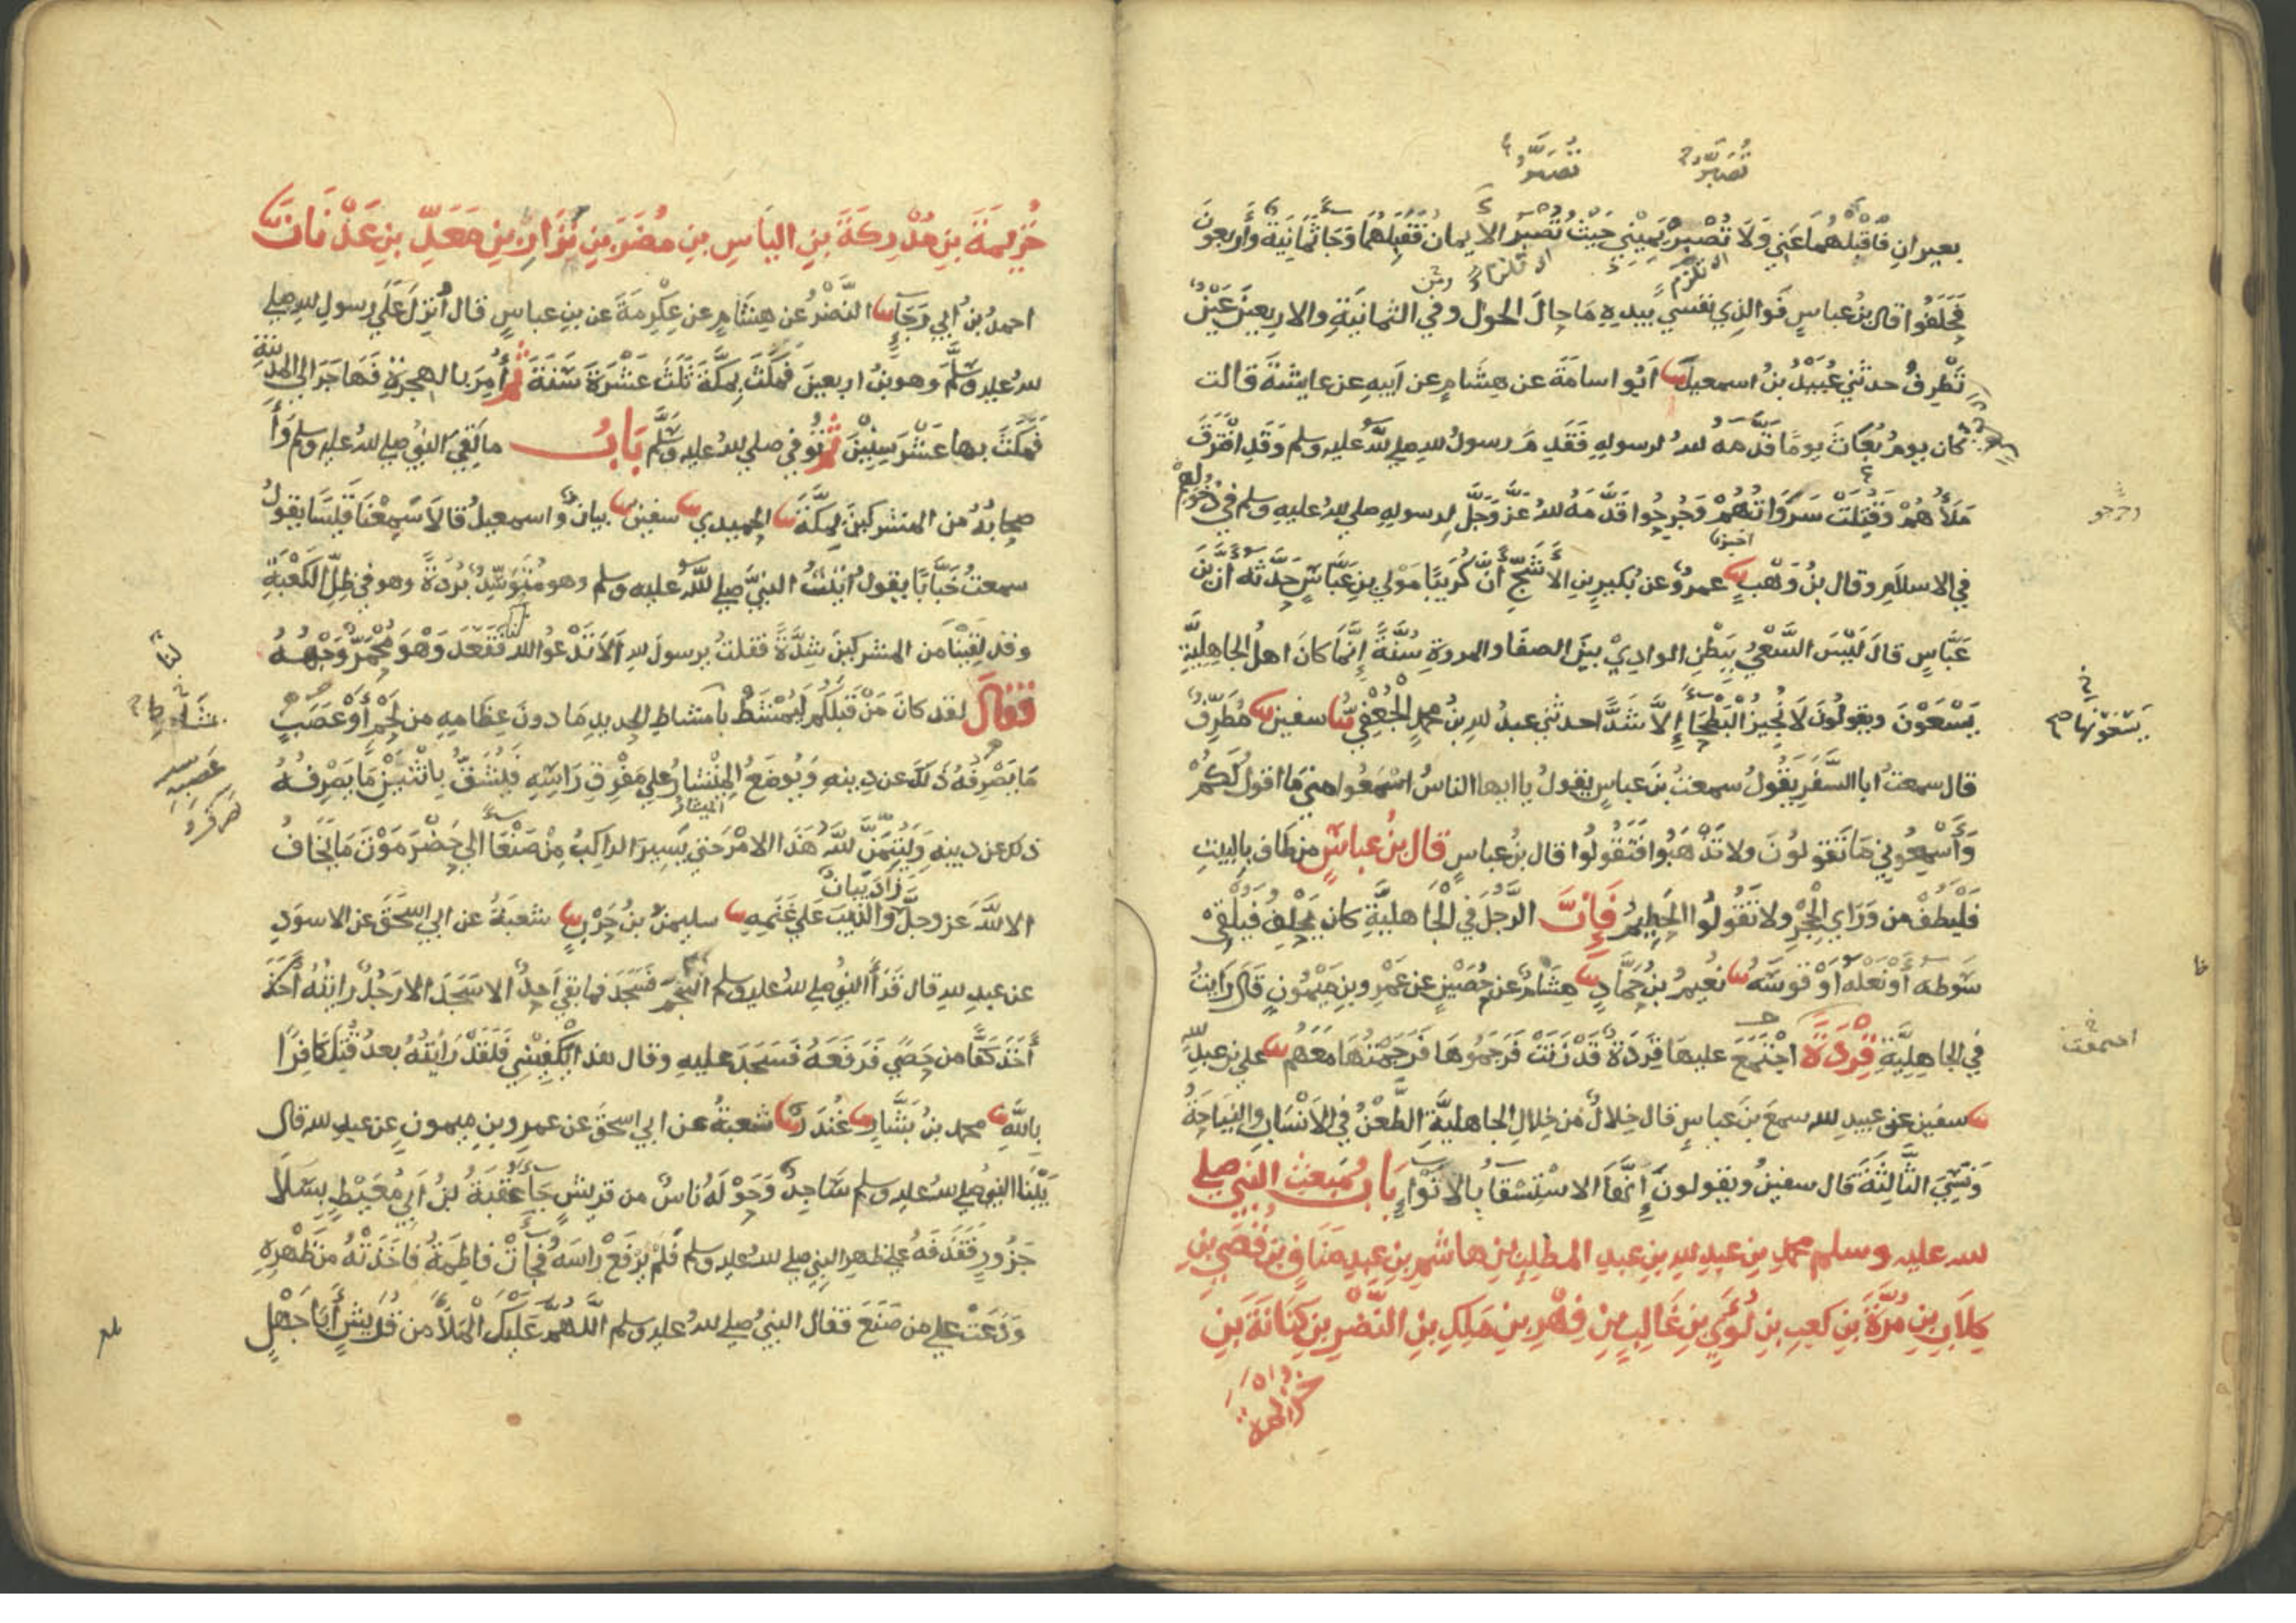 تُصْبَرُ
تُصْبَرُ
بعيران فاقبلهما عني ولا تُصْبِرْ يميني حيث تُصْبَرُ الايمان فقبلهما وجا ثمانية واربعون
فحلفوا قال بن عباس فوالذي نفسي بيده ما حال الحول وفي الثمانية والاربعين عين
تطرف حدثني عبيد بن اسمعيل ابو اسامة عن هشام عن ابيه عن عايشة قالت
كان يوم بعاث يوما قدمه لله لرسوله فقدم رسول لله صلى لله عليه وسلم وقد افترق
ملأهم وقتلت سرواتهم وجرحوا قدمه لله عز وجل لرسوله صلى لله عليه وسلم في دخولهم
في الاسلام وقال بن وهب عمرو عن بكير بن الاشج أن كريبا مولى بن عباس حدثه ان بن
عباس قال ليس السعي ببطن الوادي بين الصفا والمروة سنة إنما كان اهل الجاهلية
يسعون ويقولون لا نجيز البطحا إلا شدا حدثني عبد لله بن محمد الجعفي سفين مطرف
يسعونها
قال سمعت ابا السفر يقول سمعت بن عباس يقول ياايها الناس اسمعوا مني ما اقول لكم
وأسمعوني ما تقولون ولا تذهبوا فتقولوا قال بن عباس قال بن عباس من طاف بالبيت
فليطف من وراي الحجر ولا تقولوا الحطيم فإن الرجل في الجاهلية كان يحلف فيلقي
سوطه أو نعله أو قوسه نعيم بن حماد هشام عن حصين عن عمرو بن ميمون قال رايت
في الجاهلية قردة اجتمع عليها قردة قد زنت فرجموها فرجمتها معهم علي بن عبد لله
سفين عن عبيد لله سمع بن عباس قال خلال من خلال الجاهلية الطعن في الانساب والنياحة
ونسي الثالثة قال سفين ويقولون إنها الاستسقا بالانوا باب مبعث النبي صلى
لله عليه وسلم محمد بن عبد لله بن عبد المطلب بن هاشم بن عبد مناف بن قصي بن
كلاب بن مرة بن كعب بن لؤي بن غالب بن فهر بن ملك بن النضر بن كنانة بن
خزيمة
خزيمة بن مدركة بن الياس بن مضر بن نزار بن معد بن عدنان
احمد بن ابي رجا النضر عن هشام عن عكرمة عن بن عباس قال أنزل على رسول لله صلى
لله عليه وسلم وهو بن اربعين فمكث بمكة ثلث عشرة سنة ثم أمر بالهجرة فهاجر الى المدينة
فمكث بها عشر سنين ثم توفي صلى لله عليه وسلم باب ما لقي النبي صلى لله عليه وسلم وأ
صحابه من المشركين بمكة الحميدي سفين بيان واسمعيل قالا سمعنا قيسا يقول
سمعت خبابا يقول اتيت النبي صلى لله عليه وسلم وهو متوسد بردة وهو في ظل الكعبة
وقد لقينا من المشركين شدة فقلت يرسول لله ألا تدعو الله لنا فقعد وهو محمر وجهه
فقال لقد كان من قبلكم ليمشط بامشاط الحديد ما دون عظامه من لحم أو عصب
ما يصرفه ذلك عن دينه ويوضع المنشار على مفرق راسه فيشق باثنين ما يصرفه
ذلك عن دينه وليتمن لله هذا الامر حتى يسير الراكب من صنعا الى حضرموت ما يخاف
زاد بيان
الا لله عز وجل والذيب على غنمه سليمن بن حرب شعبة عن ابي اسحق عن الاسود
عن عبد لله قال قرأ النبي صلى لله عليه وسلم النجم فسجد فما بقي احد الا سجد الا رجل رايته أخذ
أخذ كفا من حصى فرفعه فسجد عليه وقال هذا يكفيني فلقد رايته بعد قتل كافرا
بالله محمد بن بشار غندر شعبة عن ابي اسحق عن عمرو بن ميمون عن عبد لله قال
بينا النبي صلى لله عليه وسلم ساجد وحوله ناس من قريش جا عقبة بن ابي معيط بسلا
جزور فقذفه على ظهر النبي صلى لله عليه وسلم فلم يرفع راسه فجات فاطمة فاخذته من ظهره
ودعت على من صنع فقال النبي صلى لله عليه وسلم اللهم عليك الملأ من قريش أبا جهل